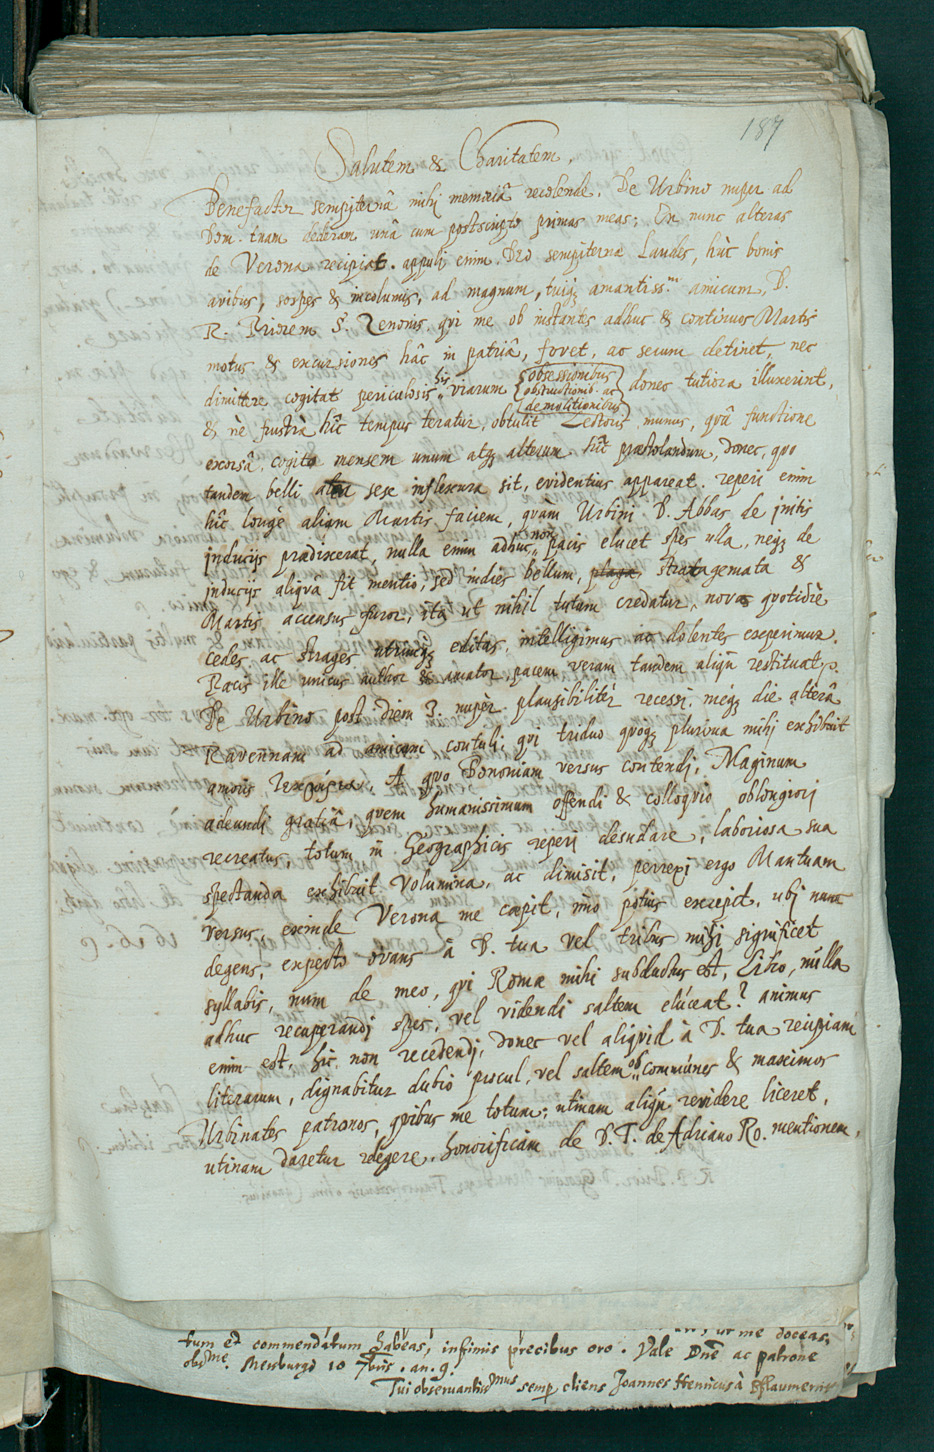 187
Salutem & Charitatem.
Benefactor sempiternâ mihj memoriâ recolende. De Urbino nuper ad
Dom. tuam dederam unâ cum postscripto primas meas; En nunc alteras
de Verona recipiat. appuli enim Deo sempiterna Laudes, hùc bonis
avibus, sospes & incolumis, ad magnum, tuiqz amantiss.m amicum, D.
R. Priorem S. Zenonis, qui me ob instantes adhuc & continuos Martis
motus & excursiones hâc in patriâ, fovet, ac secum detinet, nec
dimittere cogitat periculosis his viarum {obsessionibus
obstructionib. ac
demolitionibus} donec tutiora illuxerint,
& nè frustrà hîc tempus teratur, obtulit Lectoris munus, quâ functione
excorsâ, cogito mensem unum atqz alterum hîc praestolandum, donec, quo
tandem belli alea sese inflexura sit, evidentius appareat. reperi enim
hîc longè aliam Martis faciem, quàm Urbini D. Abbas de initis
inducijs praedixerat, nulla enim adhuc non pacis elucet spes ulla, neqz de
inducijs aliqua fit mentio, sed indies bellum, plaga stratagemata &
Martis accensus furor, ita ut nihil tutum credatur, novas quotidiè
cedes ac strages utrinqz editas, intelligimus ac dolentes experimur.
Pacis ille unicus author & amator pacem veram tandem aliqn restituat.
De Urbino post diem 3. nupèr plausibilitèr recessi, meqz die alterâ
Ravennam ad amicum contuli, qui triduo quoqz plurima mihj exhibuit
amoris A quo Bononiam versus contendj, Maginum
adeundj gratiâ, quem humanissimum offendi & colloquio oblongiorj
recreatus, totum in Geographicis reperi desudare, laboriosa sua
spectanda exhibuit Volumina, ac dimisit, perrexj ergo Mantuam
versus, exinde Verona me coepit, imò potius excepit. ubj nunc
degens, expecto ovans à D. tua vel tribus mihj significet
syllabis, num de meo, qui Romae mihi subductus est, Libro, nulla
adhuc recuperandj spes, vel videndi saltem eluceat? animus
enim est, hic non recedendj, donec vel aliquid à D. tua recipiam
literarum, dignabitur dubio procul, vel saltem ob communes & maximos
Urbinates patronos, quibus me totum; utinam aliqn revidere liceret,
utinam daretur relegere, honorificam de D. T. de Adriano Ro. mentionem,
ut me doceas,
tum et commendatum habeas, infimis precibus oro. Vale Dne ac patrone
obsme. Mersburgo 10 7bris. an. 9.
Tui observantissmus semp cliens Joannes Henricus à Pflaumern